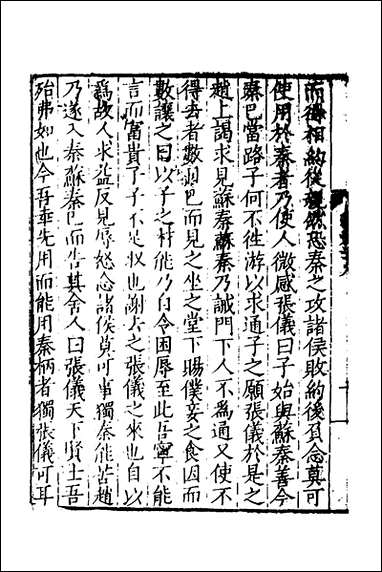 而得相約從親然恐秦之攻諸侯敗約後負念莫可
使用於秦者乃使人微感張儀曰子始與蘇秦善今
秦巳當路子何不徃游以求通子之願張儀於是之
趙上謁求見蘇秦蘇秦乃誡門下人不爲通又使不
得去者數日巳而見之坐之堂下賜僕妾之食因而
數讓之曰以子之材能乃自令困辱至此吾寧不能
言而富貴子子不足收也謝去之張儀之來也自以
爲故人求益反見辱怒念諸侯莫可事獨秦能苦趙
乃遂入秦蘇秦巳而告其舍人曰張儀天下賢士吾
殆弗如也今吾幸先用而能用秦柄者獨張儀可耳